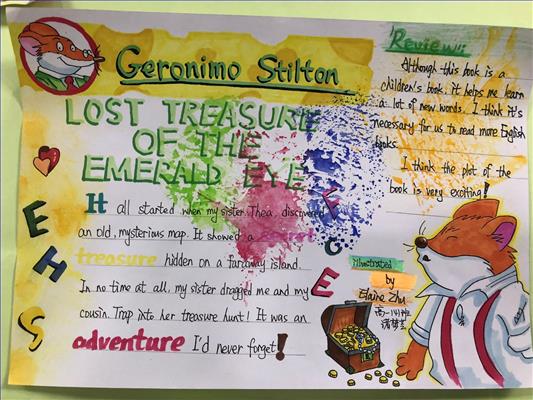 Geronimo Stilton
LOST TREASURE
OF THE
EMERALD EYE
It all started when my sister, Thea, discovered
an old, mysterious map. It showed a secret
treasure hidden on a faraway island.
In no time at all, my sister dragged me and my
cousin. Trap into her treasure hunt! It was an
adventure I'd never forget!
E
H
S
F
C
E
Review:
Although this book is a
children's book, it helps me learn
a lot of new words. I think it's
necessary for us to read more English
books.
I think the plot of the
book is very exciting!
illustrated
by
Elaine Zhu